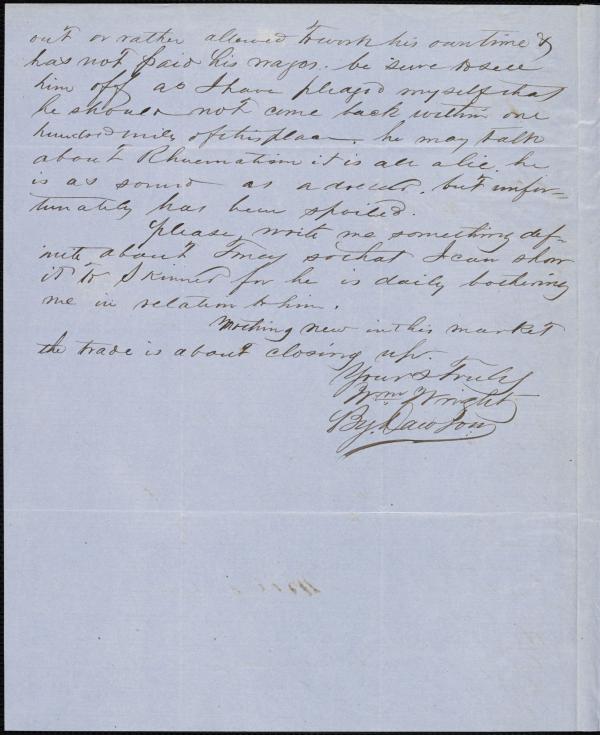 out or rather allowed to work his own time &
has not paid his wages. be sure to sell
him off as I have pledged myself that
he should not come back within one
hundred miles of this place. he may talk
about Rhuematism it is all a lie. he
is as sound as a dollar. but unfor-
tunately has been spoiled.
please write me something def-
inite about so that I can show
it to Skinner for he is daily bothering
me in relation to him.
Nothing new in this market
the trade is about closing up.
Yours Truly
Wm Wright
By